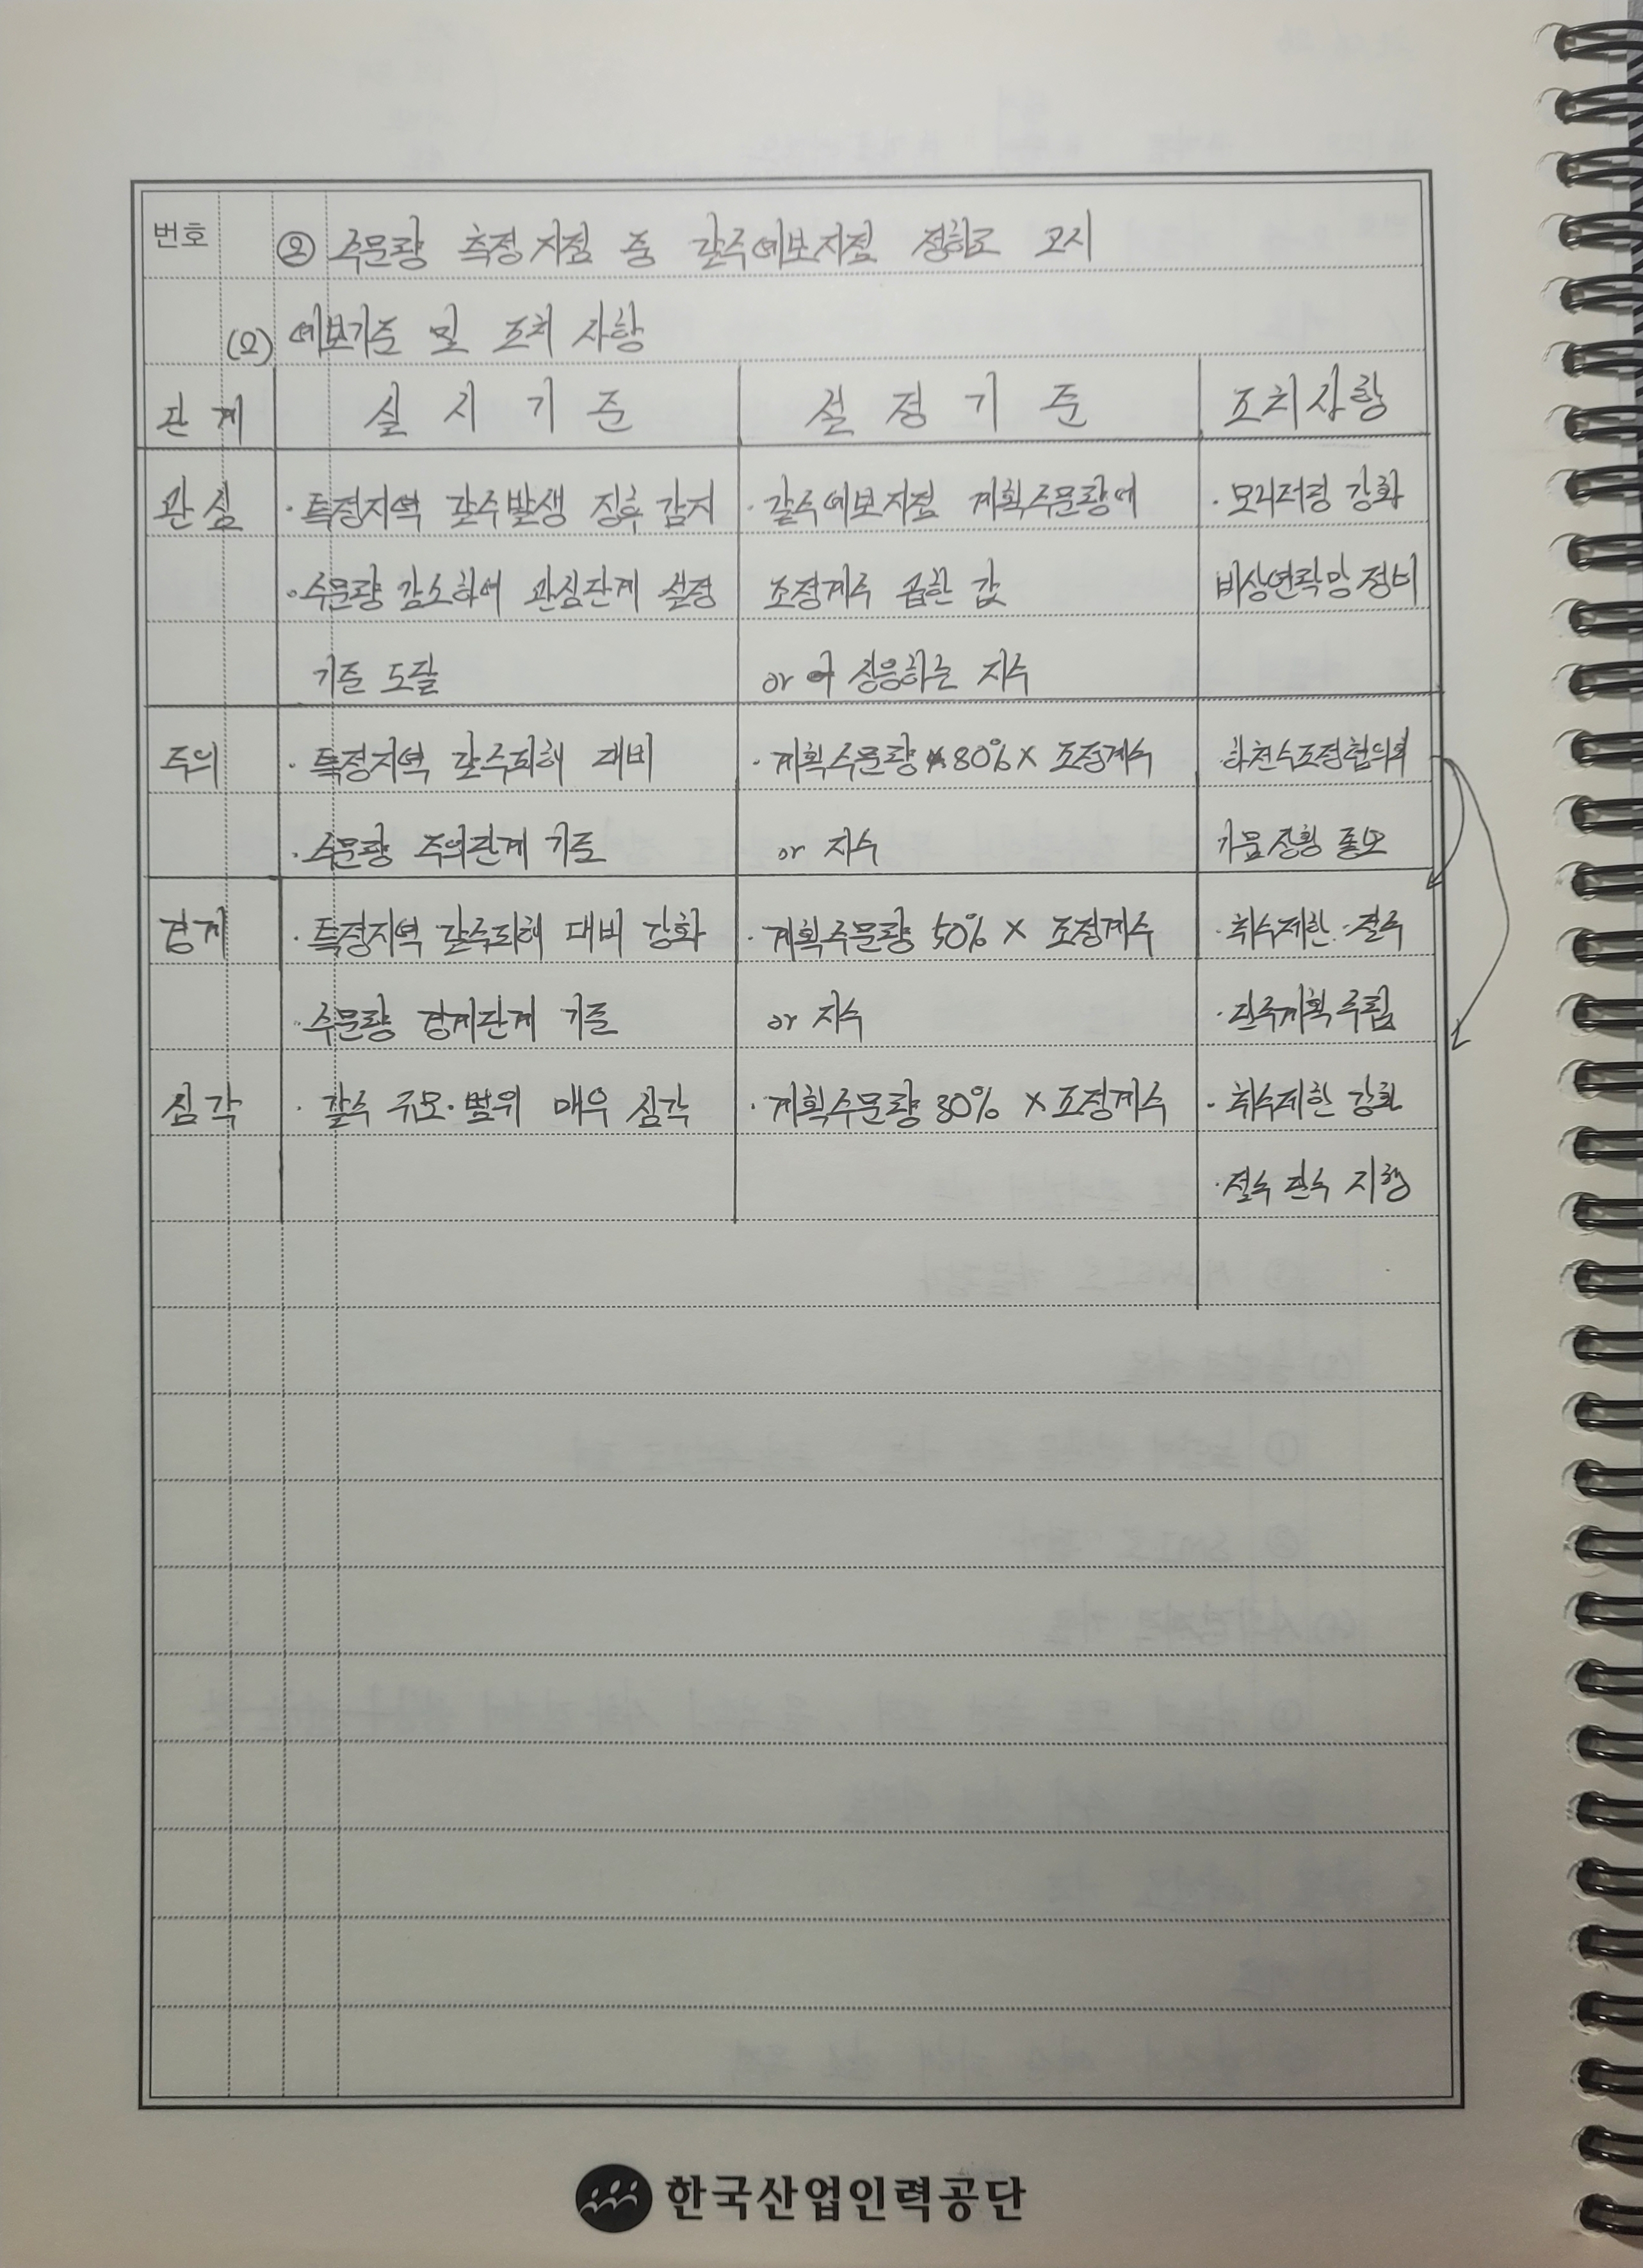 번호 ② 수문량 측정지점 중 갈수예보지점 정하고 고시
(2) 예보기준 및 조치 사항
단계 실시기준 설정기준 조치사항
관심 · 특정지역 갈수발생 징후 감지 · 갈수예보지점 계획수문량에 · 모니터링 강화
· 수문량 감소하여 관심단계 설정 조정계수 곱한 값 비상연락망 정비
기준 도달 or 상응하는 지수
주의 · 특정지역 갈수피해 대비 · 계획수문량 × 80% × 조정계수 · 하천수조정협의회
· 수문량 주의단계 기준 or 지수 가뭄상황 통보
경계 · 특정지역 갈수피해 대비 강화 · 계획수문량 50% × 조정계수 · 취수제한 · 절수
· 수문량 경계단계 기준 or 지수 · 단수계획 수립
심각 · 갈수 규모·범위 매우 심각 · 계획수문량 30% × 조정계수 · 취수제한 강화
· 절수 단수 시행
한국산업인력공단